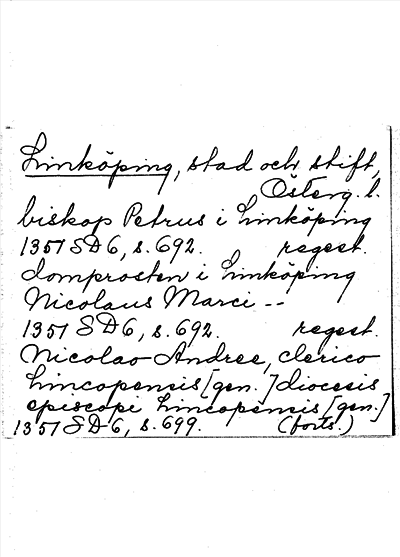 Linköping, stad och stift,
Österg. l.
biskop Petrus i Linköping
1351 SD 6, s. 692. regest.
domprosten i Linköping
Nicolaus Marci --
1351 SD 6, s. 692. regest.
Nicolao Andree, clerico
Lincopensis [gen.] diocesis
episcopi Lincopensis [gen.]
1351 SD 6, s. 699. (forts.)